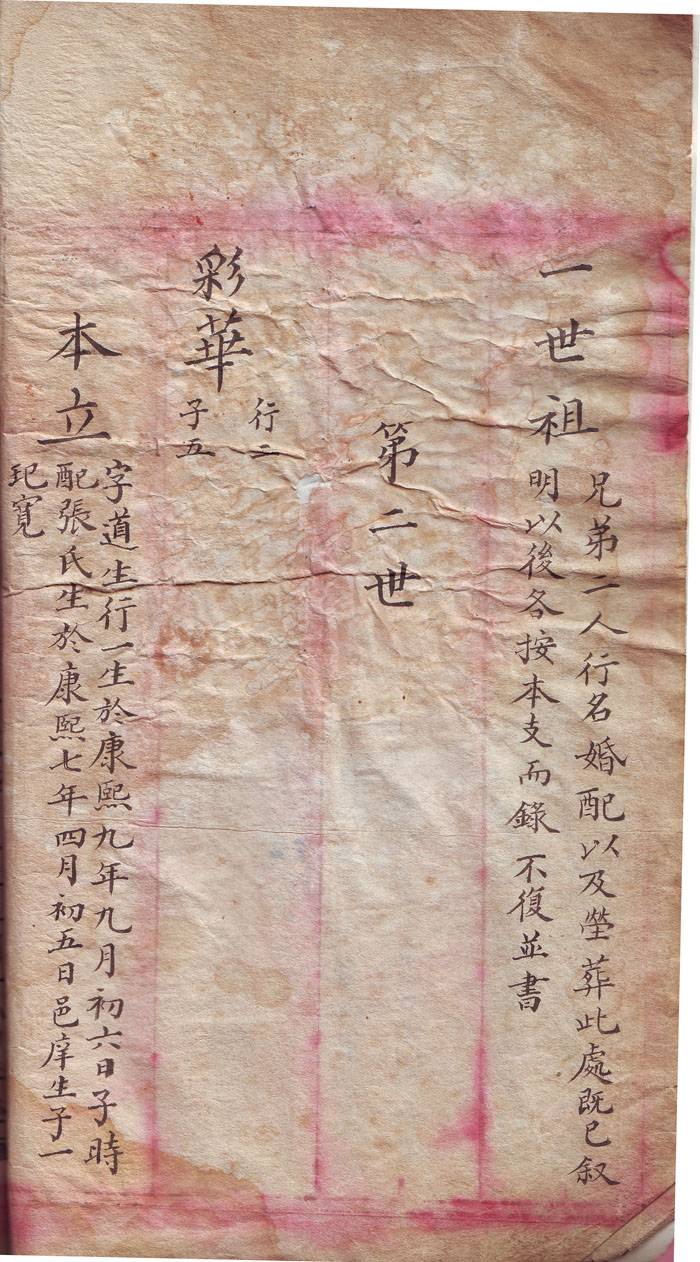 一世祖
兄弟二人行名婚配以及塋葬此處既已叙
明以後各按本支而錄不復並書
第二世
彩華
行二
子五
本立
字道生行一生於康熙九年九月初六日子時
配張氏生於康熙七年四月初五日邑庠生子一
玘寬